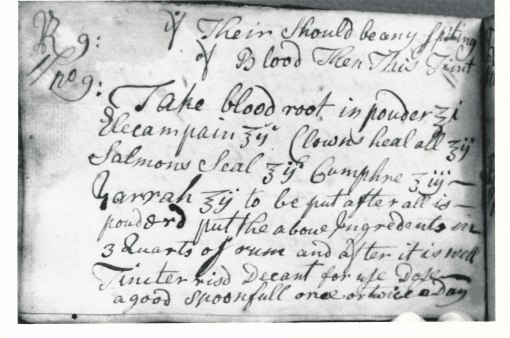 R 9: if Their Should be any spiting
No 9: of Blood Then This Tint
Take blood root in powder ʒi
Elecampain ʒij Clowns heal all ʒij
Salmons Seal ʒij Cumphre ʒiij —
Yarrah ʒij to be put after all is —
pouderd put the above Ingredents in
3 Quarts of rum and after it is well
Tincterrisd Decant for use Dose
a good spoonfull once or twice a Day